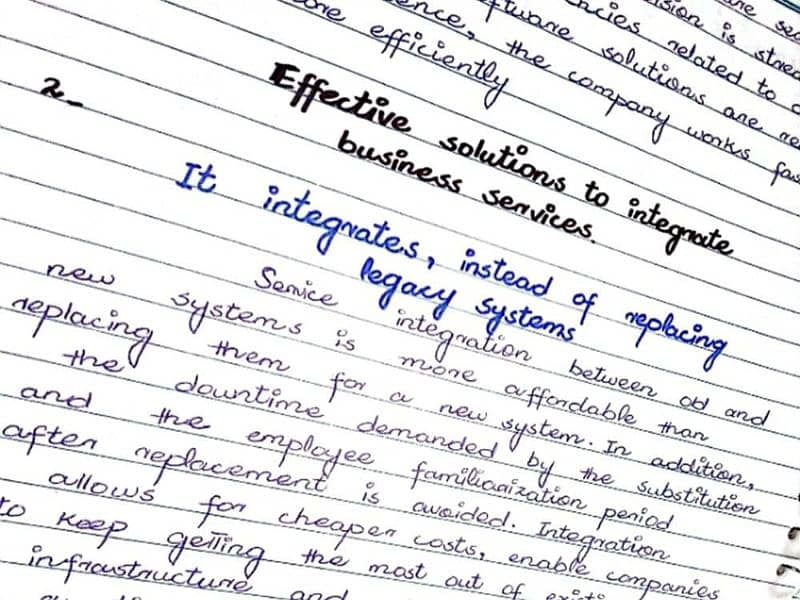 are sec
ision is stored
ncies related to
ftware solutions are re
ence, the company works fas
efficiently
2_
Effective solutions to integrate
business services.
It integrates, instead of replacing
legacy systems
Service integration between old and
new systems is more affordable than
replacing them for a new system. In addition,
the downtime demanded by the substitution
and the employee familiarization period
after replacement is avoided. Integration
allows for cheaper costs, enable companies
to keep getting the most out of existi
infrastructure and